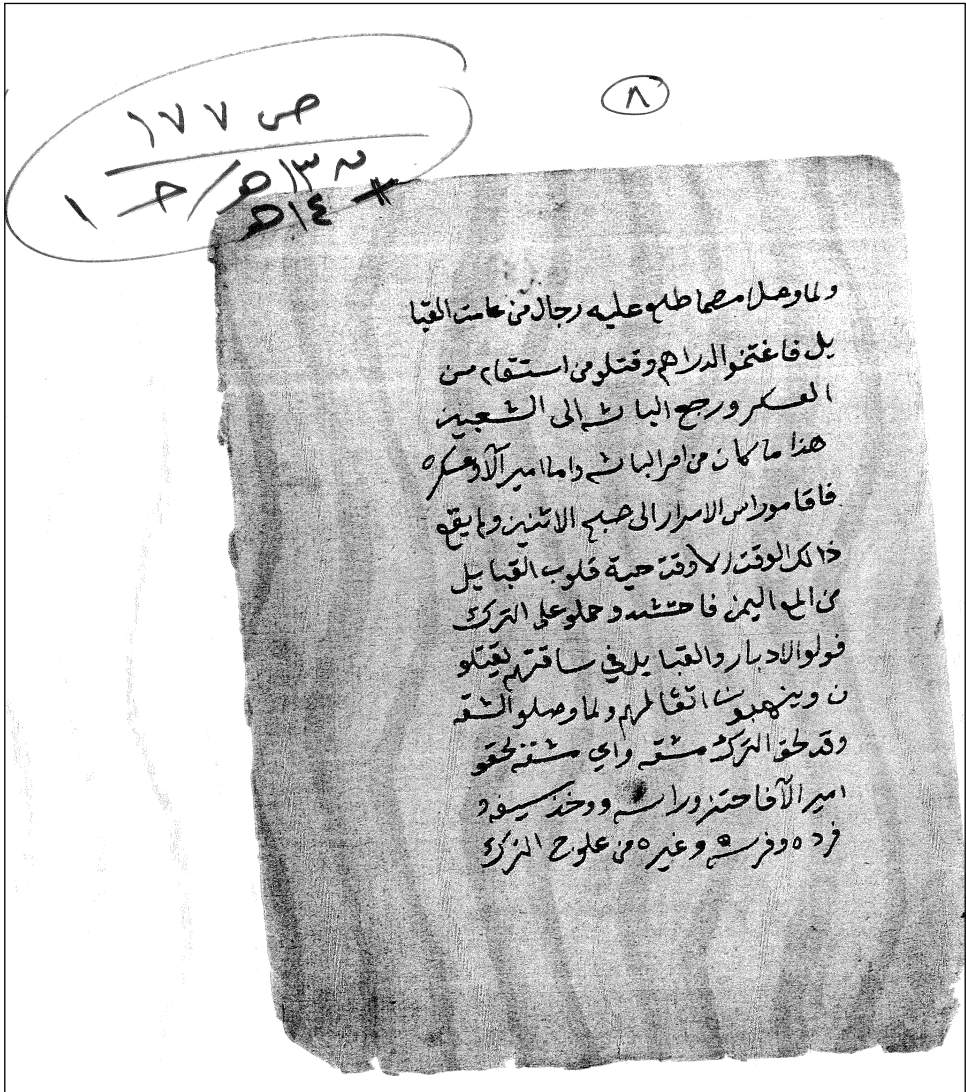 ٨
ص ١٧٧
١٣هـ / حـ ١
+ ١٤هـ
ولما وصل امصما طلع عليه رجال من عامت القبا
يل فاغتنمو الدراهم وقتلو من استقام من
العسكر ورجع الباشه الى الشعبين
هذا ما كان من امر الباشه واما امير الآلاو عسكره
فاقامو راس الامدار الى صبح الاثنين ولم يقع
ذالك الوقت الا وقت حية قلوب القبايل
من المع اليمن فاحتشد وحملو على الترك
فولو الادبار والقبايل في ساقتهم يقتلو
ن وينهبون اثقالهم ولما وصلو الشقه
وقد لحق الترك مشقه واي مشقه لحقو
امير الآ فاحتزو راسه ووخذ سيفه و
فرده وفرسه وغيره من علوج الترك